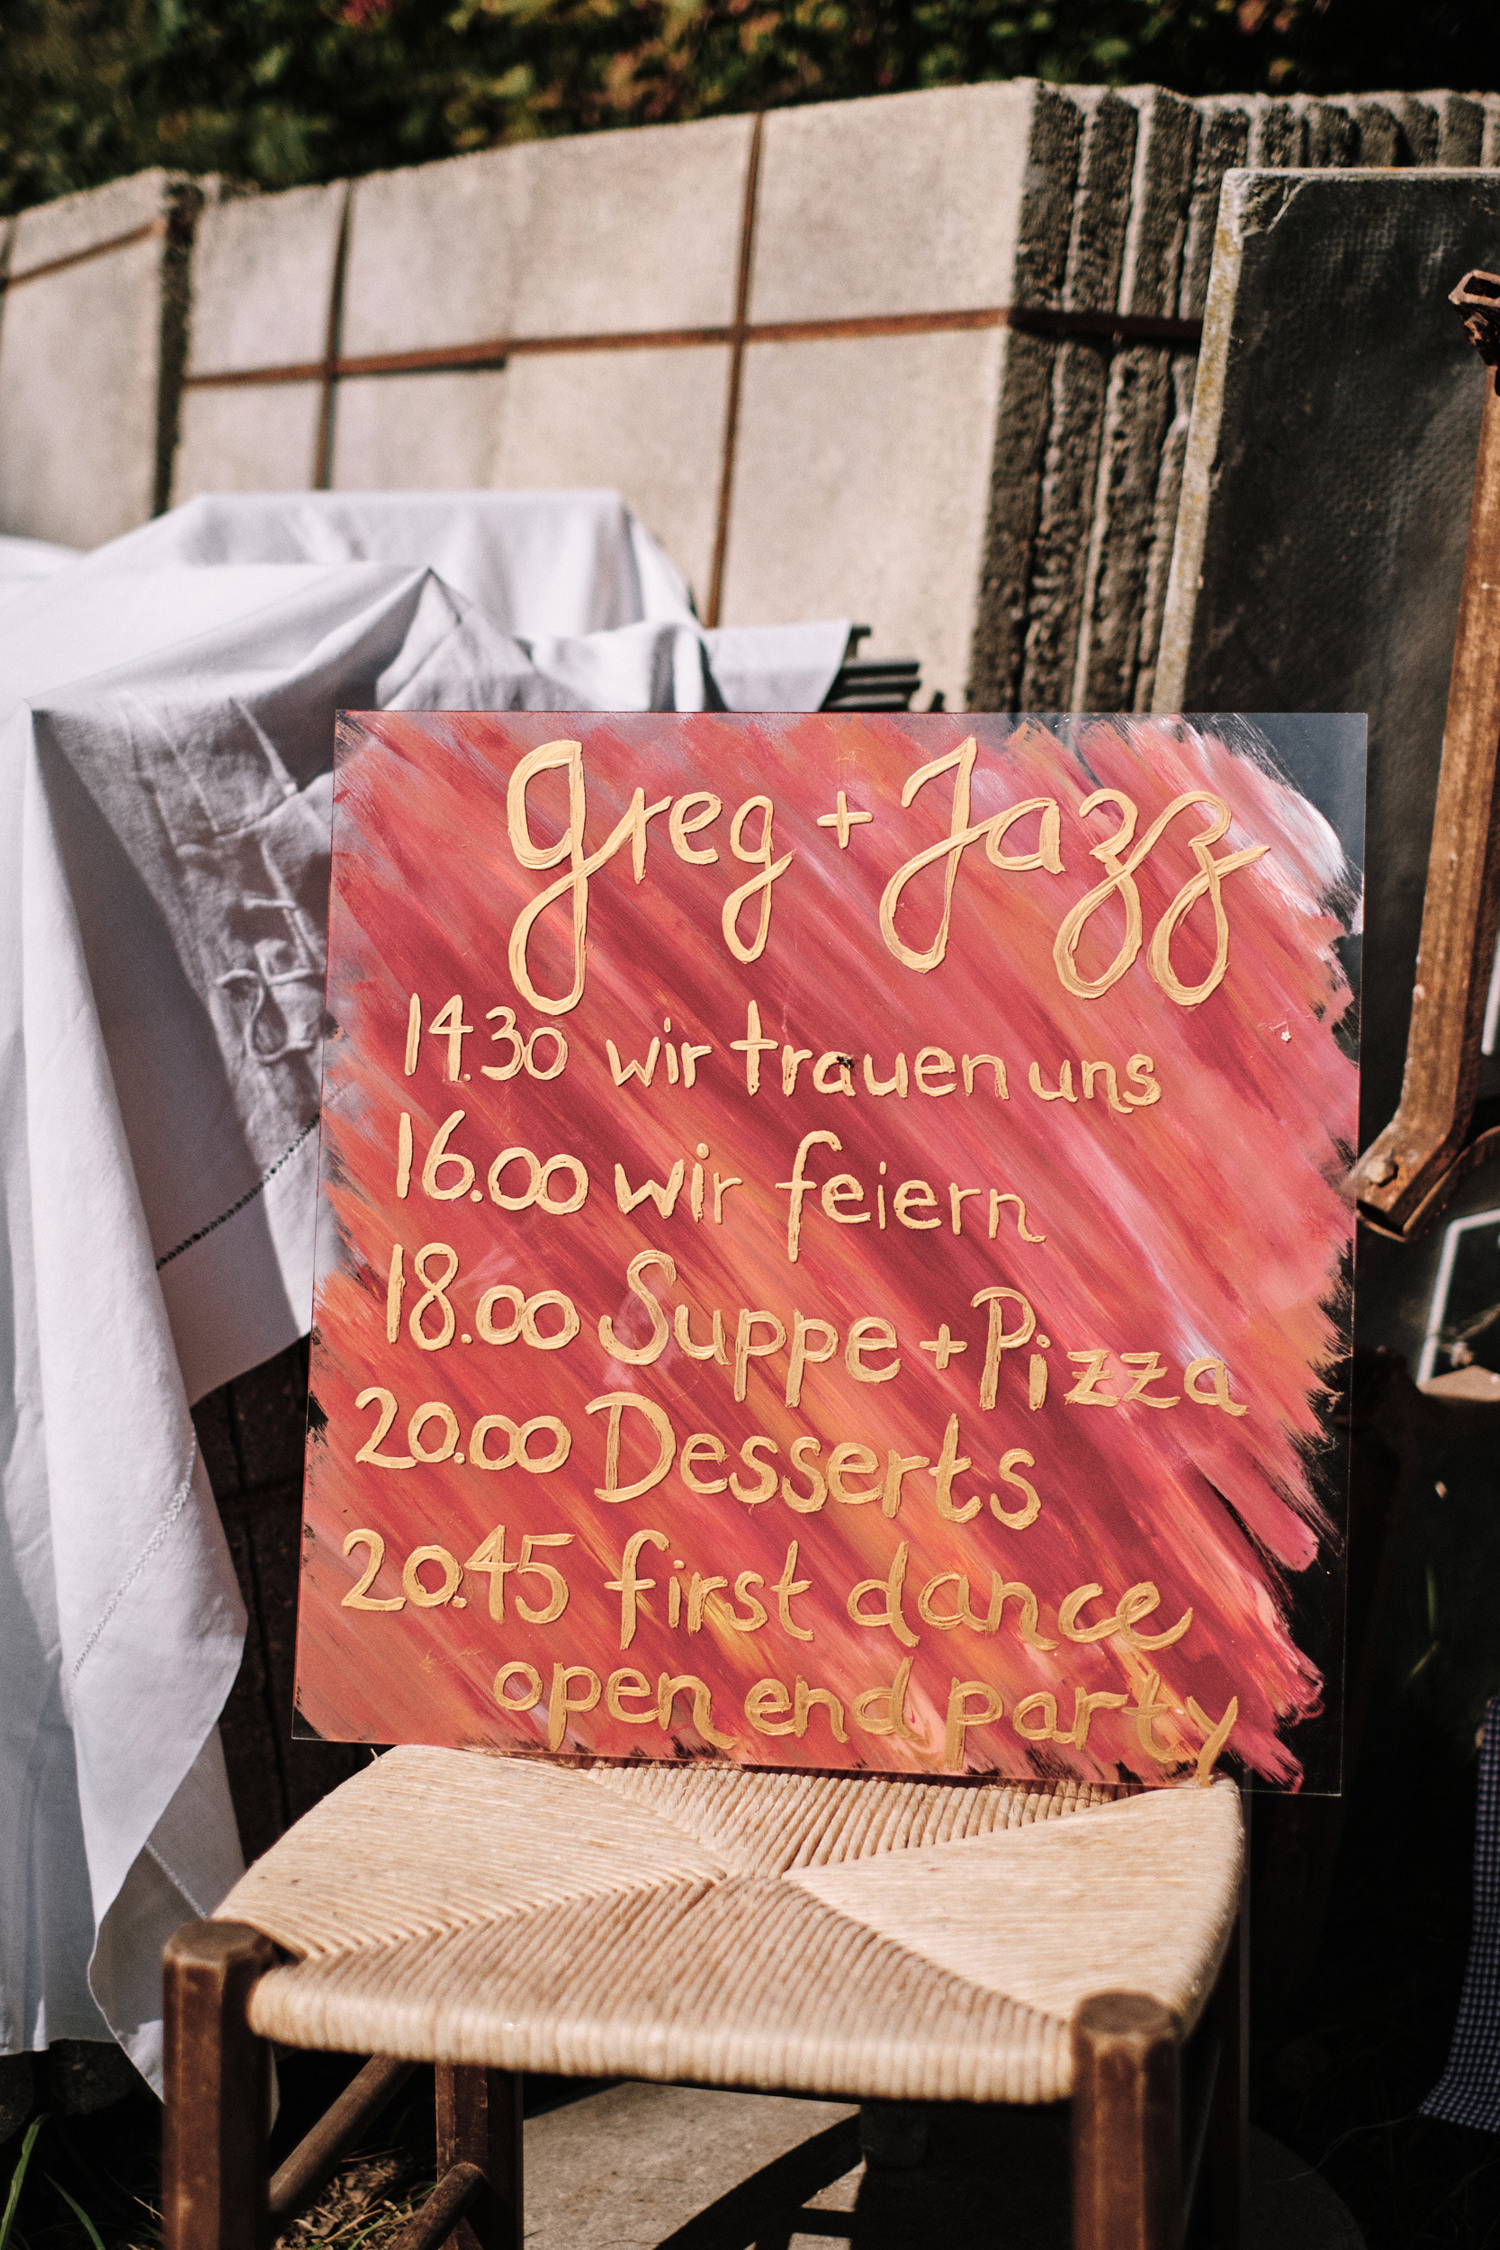 Greg + Jazz
14.30 wir trauen uns
16.00 wir feiern
18.00 Suppe + Pizza
20.00 Desserts
20.45 first dance
open end party